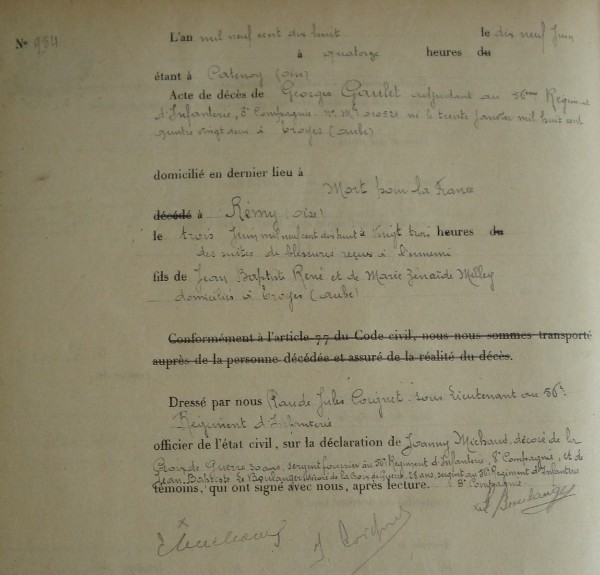 N° 954
L'an mil neuf cent dix huit le dix neuf Juin
à quatorze heures du
étant à Catenoy (oise)
Acte de décès de Georges Gaulet adjudant au 56ème Régiment
d'Infanterie, 8e Compagnie. N° Mle né le trente janvier mil huit cent
quatre vingt deux à Troyes (aube)
domicilié en dernier lieu à
Mort pour la France
décédé à Rémy (oise)
le trois Juin mil neuf cent dix huit à vingt trois heures du
des suites de blessures reçus à l'ennemi
fils de Jean Baptiste René et de Marie Zénaïde Milley
domiciliés à Troyes (aube)
Conformément à l'article 77 du Code civil, nous nous sommes transporté
auprès de la personne décédée et assuré de la réalité du décès.
Dressé par nous Claude Jules Coignet sous Lieutenant au 56e
Régiment d'Infanterie
officier de l'état civil, sur la déclaration de Joanny Michaud, décoré de la
Croix de Guerre ans, sergent fourrier au 56e Régiment d'Infanterie, 8e Compagnie, et de
Jean Baptiste Le Boulanger décoré de la Croix de Guerre, 28 ans, sergent au 56e Régiment d'Infanterie
témoins, qui ont signé avec nous, après lecture. 8e Compagnie
J. Coignet
Le Boulanger